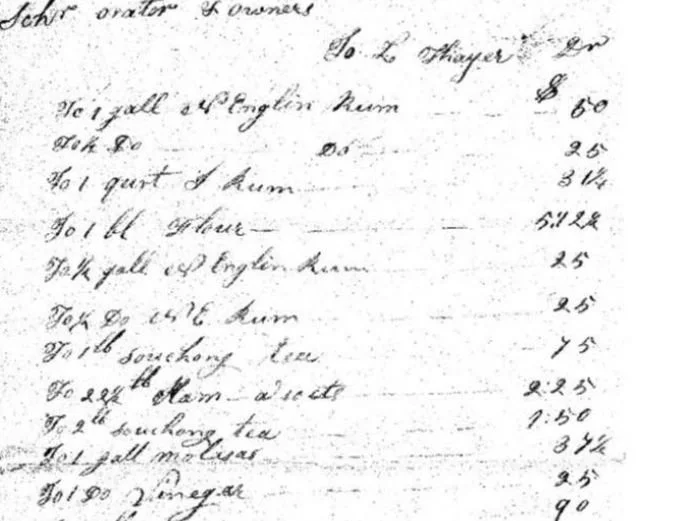 Schr orator & owners
To L Thayer Dr
To 1 gall N Englin Rum $ 50
To ½ Do Do 25
To 1 qurt J Rum 31¼
To 1 bl Flour 5.12½
To ½ gall N Englin Rum 25
To ½ Do N E Rum 25
To 1 lb souchong tea 75
To 22½ lb Ham a 10 cts 2.25
To 2 lb souchong tea 1.50
To 1 gall molisas 37½
To 1 Do Vinegar 25
90